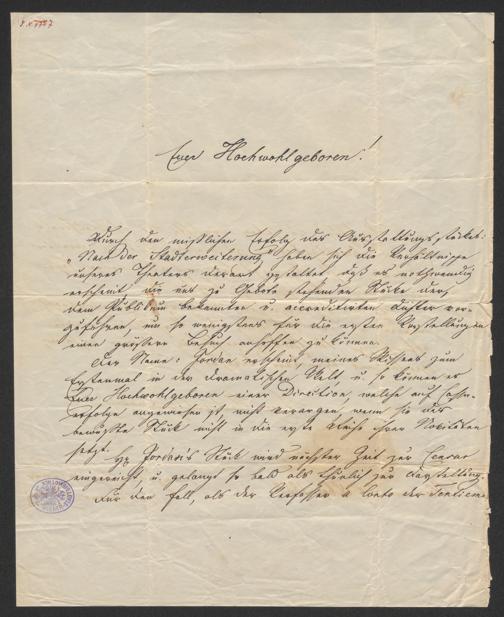 Euer Hochwohlgeboren!
Durch den mißlichen Erfolg des Ausstattungsstückes:
„Nach der Stadterweiterung" haben sich die Verhältnisse
unseres Theaters derart gestaltet, daß es nothwendig
erscheint, die uns zu Gebote stehenden Stücke der,
dem Publikum bekannten u. accreditirten Dichter vor-
zuführen, um so wenigstens für die ersten Vorstellungen
einen größern Besuch anhoffen zu können.
Der Name: Jordan erscheint, meines Wissens zum
Erstenmal in der dramatischen Welt, u. so können es
Euer Hochwohlgeboren einer Direction, welche auf Cassa-
erfolge angewiesen ist, nicht verargen, wenn sie das
bewußte Stück nicht in die erste Reihe ihrer Novitäten
setzt.
Jordan's Stück wird nächster Zeit zur Censur
eingereicht, u. gelangt so bald als thunlich zur Darstellung.
Für den Fall, als der Verfasser à Conto der Tantieme